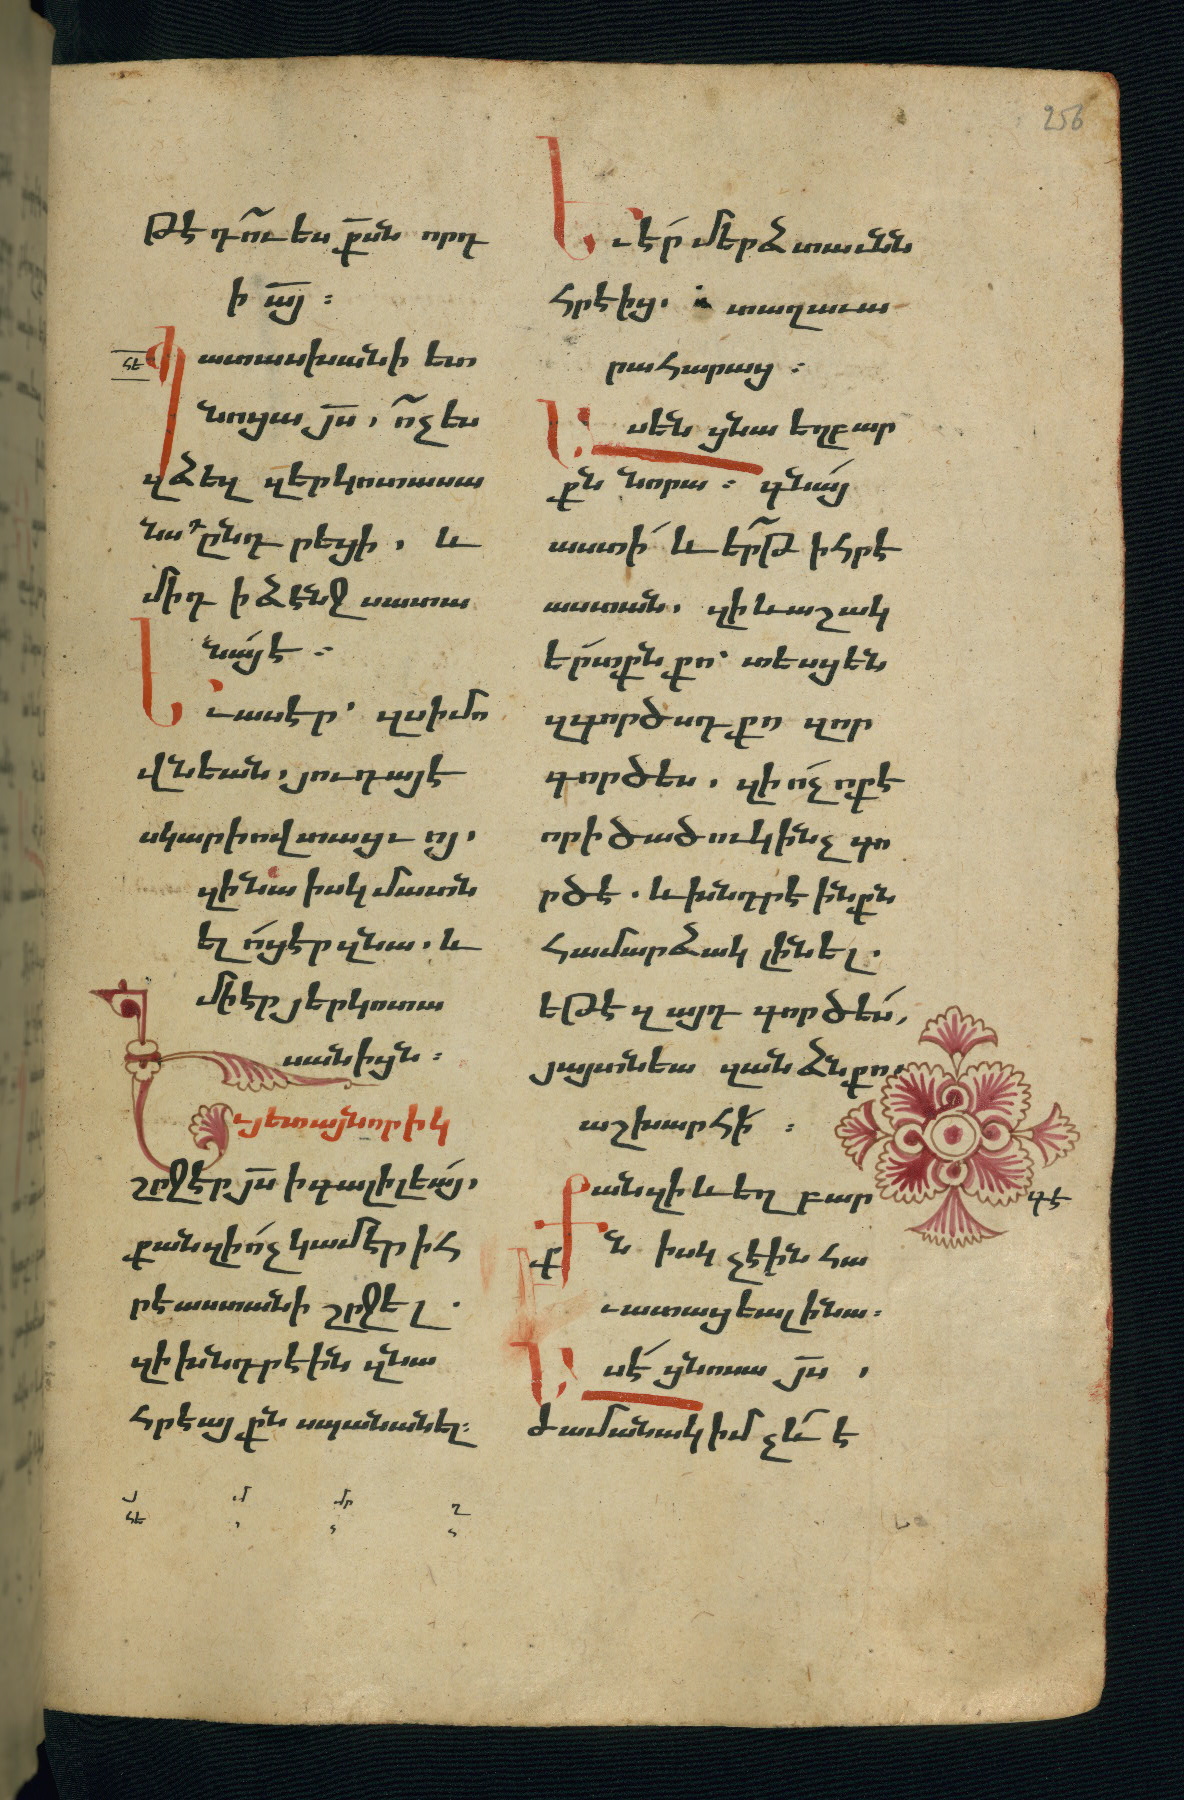 256
թէ դ՞ու ես ք̅ս̅ն որդ
ի ա̅յ ։
Պատասխանի ետ
ՀԵ
նոցա յ̅ս, ո՞չ ես
զձեզ զերկոտասա
նս ընտրեցի, և
միդ ի ձէնջ սատա
նայ է ։
Եւ ասէր զսիմո
վնեան, յուդայէ
սկարիովտացւոյ,
զի նա իսկ մատն
ել ո́ցէր զնա. և
մի էր յերկոտա
սանիցն ։
Եւ յետ այնորիկ
շրջէր յ̅ս ի գալիլեայ,
քանզի ոչ կամէր ի Հ
րէաստանի շրջել .
զի խնդրէին զնա
հրէայքն սպանանել։
Եւ էր մերձ տաւնն
հրէից. տաղաւա
րահարաց ։
Ասեն ցնա եղբար
քն նորա ։ գնա́
աստի և ե՞րթ ի հրէ
աստան, զի և աշակ
երտքն քո տեսցեն
զգործսդ քո զոր
գործես, զի ոչ ոք է
որ ի ծածուկ ինչ գո
րծէ. և խնդրէ ինքն
համարձակ լինել.
եթէ զայդ գործես,
յայտնեա զանձն քո
աշխարհի ։
Քանզի և եղբար
գէ
քն իսկ չէին հա
ւատացեալ ի նա։
Ասէ ցնոսա յ̅ս ,
ժամանակ իմ չև է